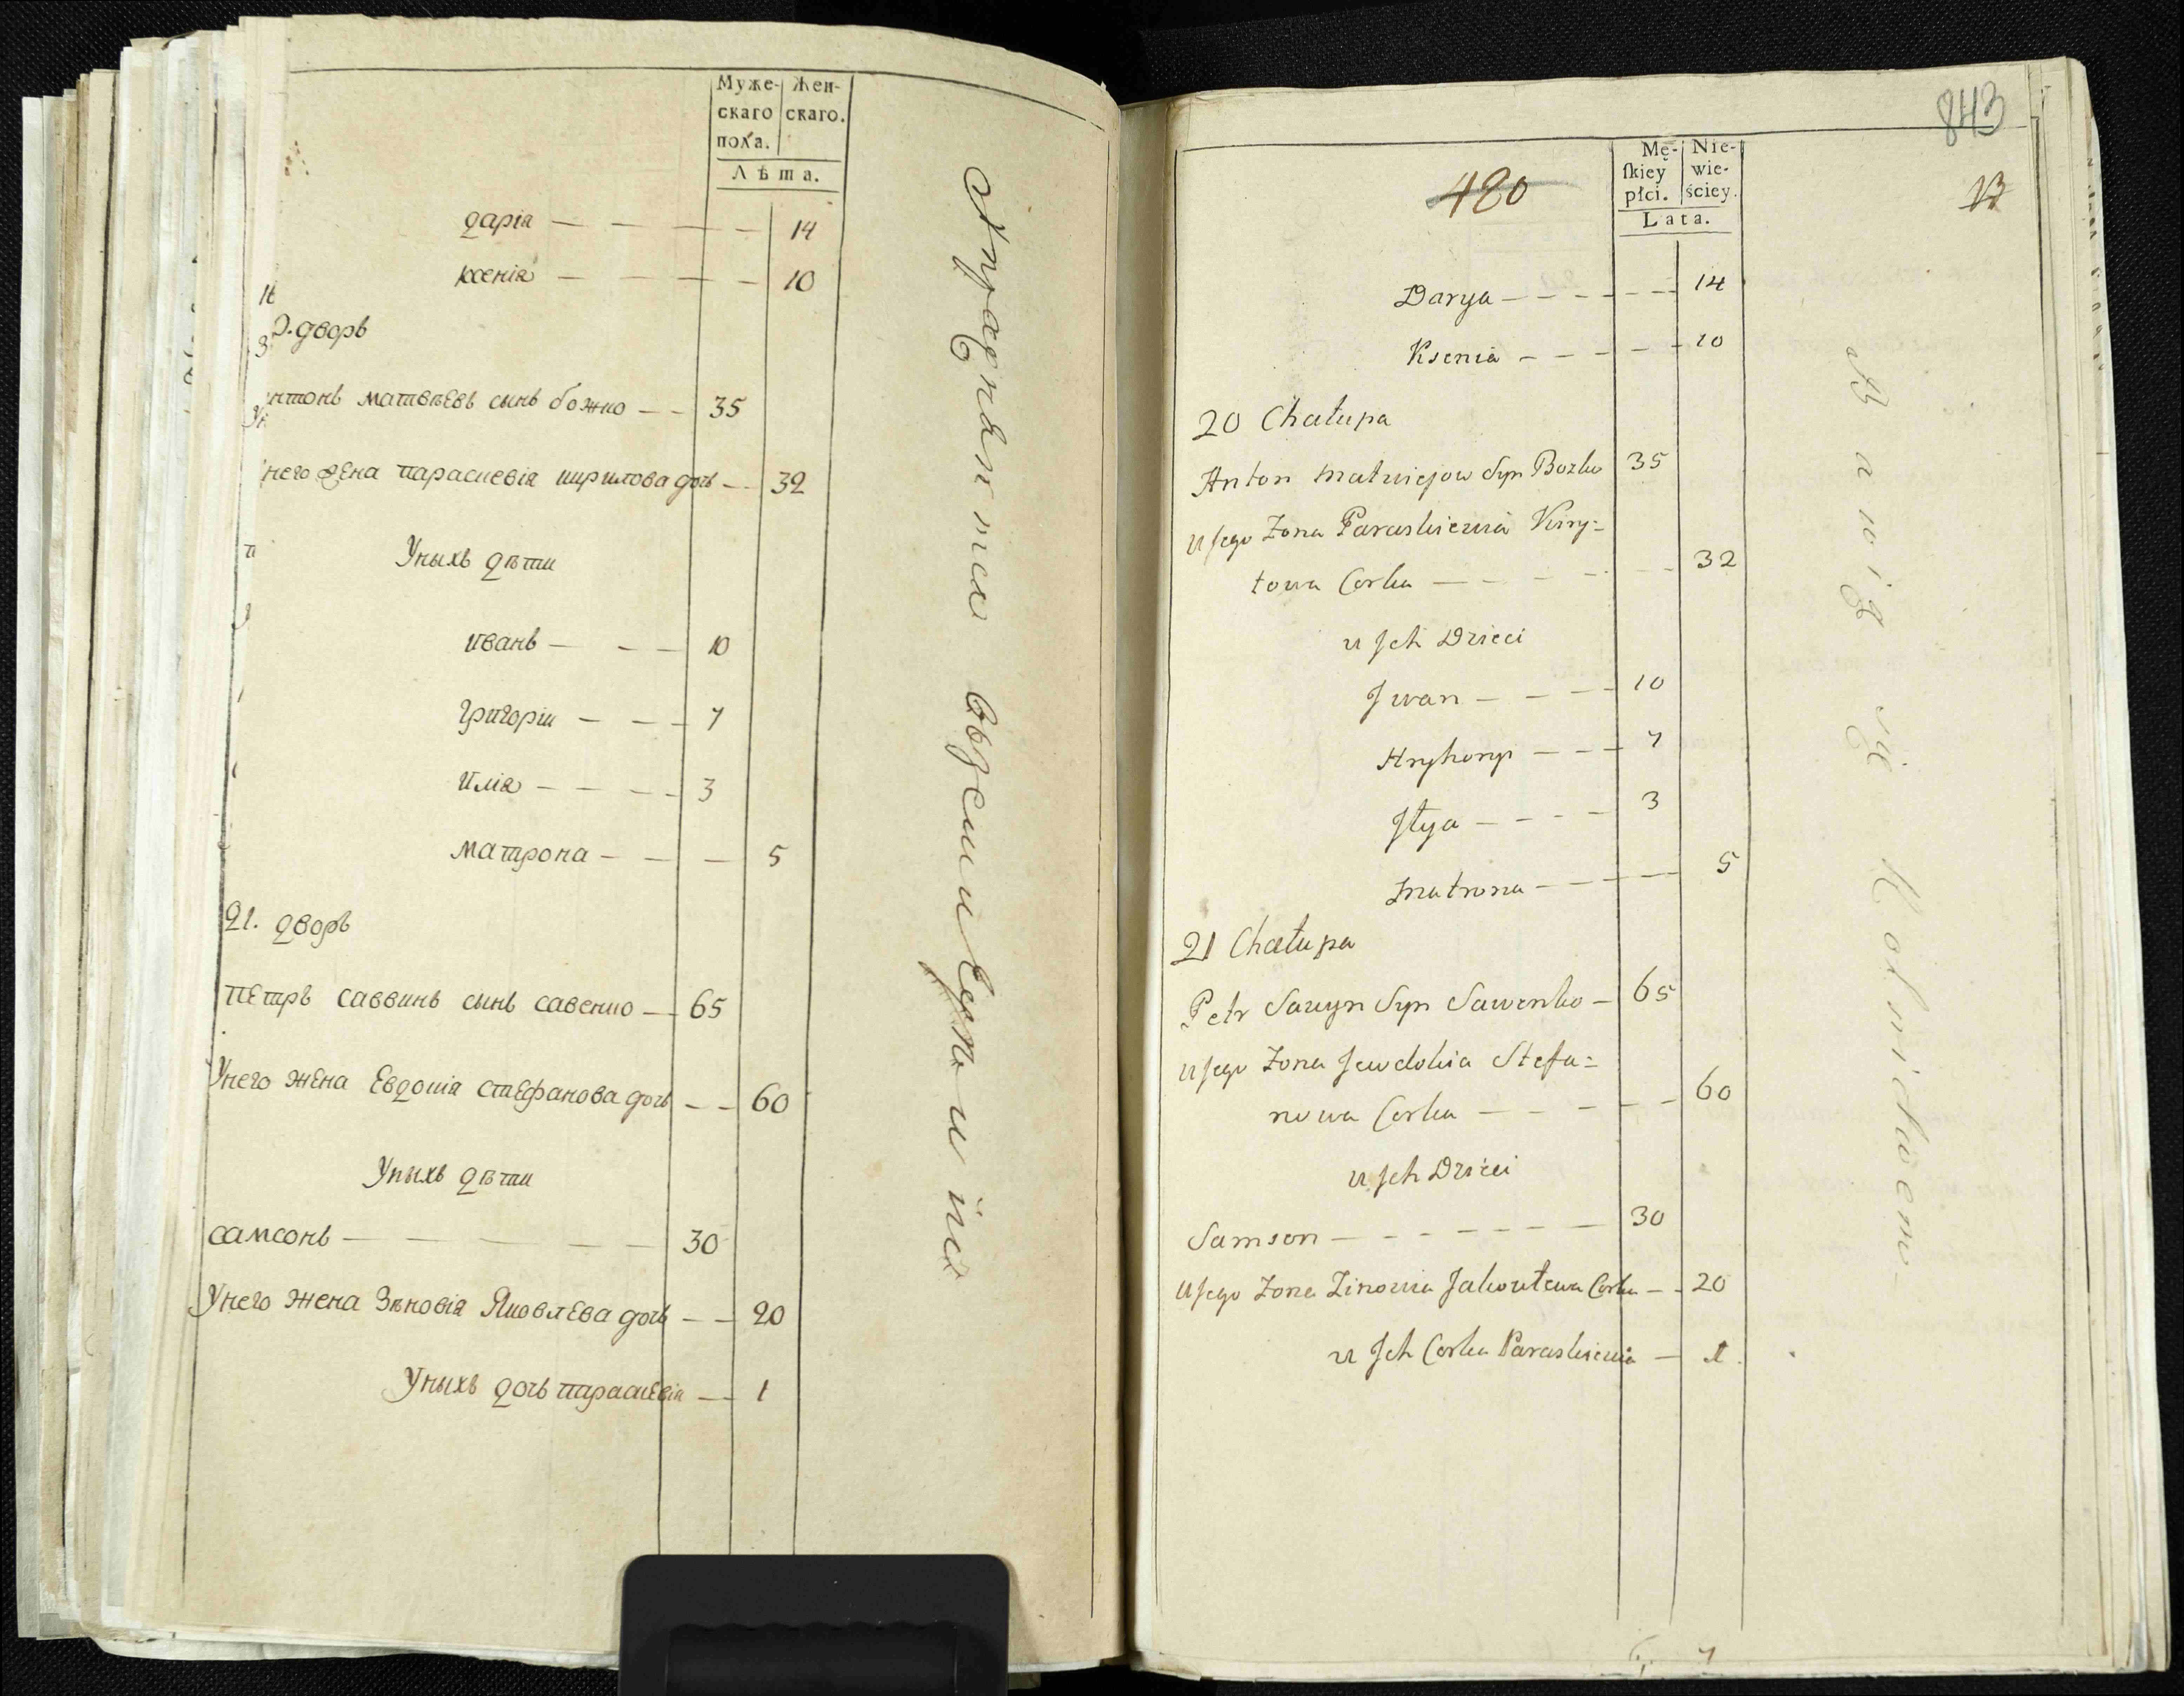 Муже- Жен-
скаго скаго.
пола.
Лѣта.
дарія — — — — 14
ксенія — — — — 10
дворъ
нтонъ матвѣевъ сынъ божко — — 35
него жена параскевія кирилова дочь — 32
Уныхъ дѣти
иванъ — — — 10
григоріи — — — 7
илія — — — — 3
матрона — — — 5
21. дворъ
пЕтръ саввинъ сынъ савенко — 65
Унего жЕна Евдокія стЕфанова дочь — — 60
Уныхъ дѣти
самсонъ — — — — — 30
Унего жена Зѣновія ЯковлЕва дочь — — 20
Уныхъ дочь параскЕвія — — 1
843
480
Mę- Nie-
ſkiey wie-
płci. ściey.
Lata.
Darya — — — — — — 14
Ksenia — — — — — 10
20 Chałupa
Anton Matwiejow Syn Bozko 35
u Jego Zona Paraskiewia Kiry=
łowa Corka — — — — — 32
u Jch Dzieci
Jwan — — — — 10
Hryhory — — — 7
Jłya — — — — 3
Matrona — — — — 5
21 Chałupa
Petr Sawyn Syn Sawenko — 65
u Jego Zona Jewdokia Stefa=
nowa Corka — — — — — 60
u Jch Dzieci
Samson — — — — — — — 30
u Jego Zona Zinowia Jakowłewa Corka — — 20
u Jch Corka Paraskiewia — 1